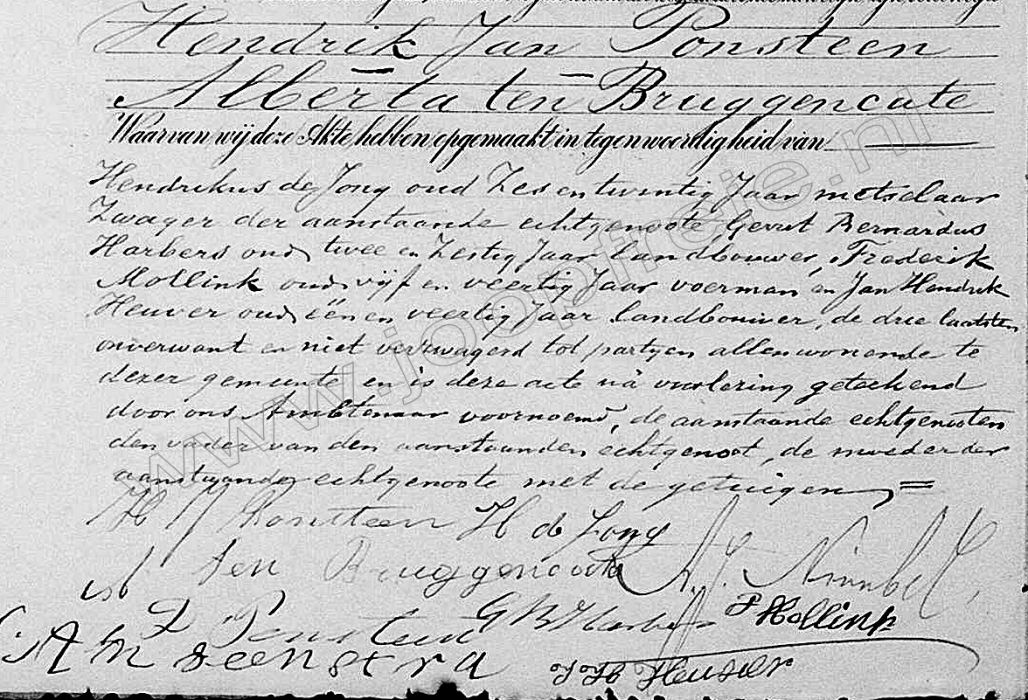 Hendrik Jan Ponsteen
Alberta ten Bruggencate
Waarvan wij deze Akte hebben opgemaakt in tegenwoordigheid van
Hendrikus de Jong oud Zes en twintig Jaar metselaar
Zwager der aanstaande echtgenoote, Gerrit Bernardus
Harbers oud twee en Zestig Jaar Landbouwer, Frederik
Mollink oud vijf en veertig Jaar voerman en Jan Hendrik
Heuver oud één en veertig Jaar landbouwer, de drie laatsten
onverwant en niet verzwagerd tot partyen allen wonende te
dezer gemeente en is deze acte nà voorlezing geteekend
door ons Ambtenaar voornoemd, de aanstaande echtgenooten
den vader van den aanstaanden echtgenoot, de moeder der
aanstaande echtgenoote met de getuigen
H J Ponsteen H de Jong
ten Bruggencate
Ponsteen G B Harbers F Mollink
A M Veenstra J H Heuver
www.joopfreje.nl